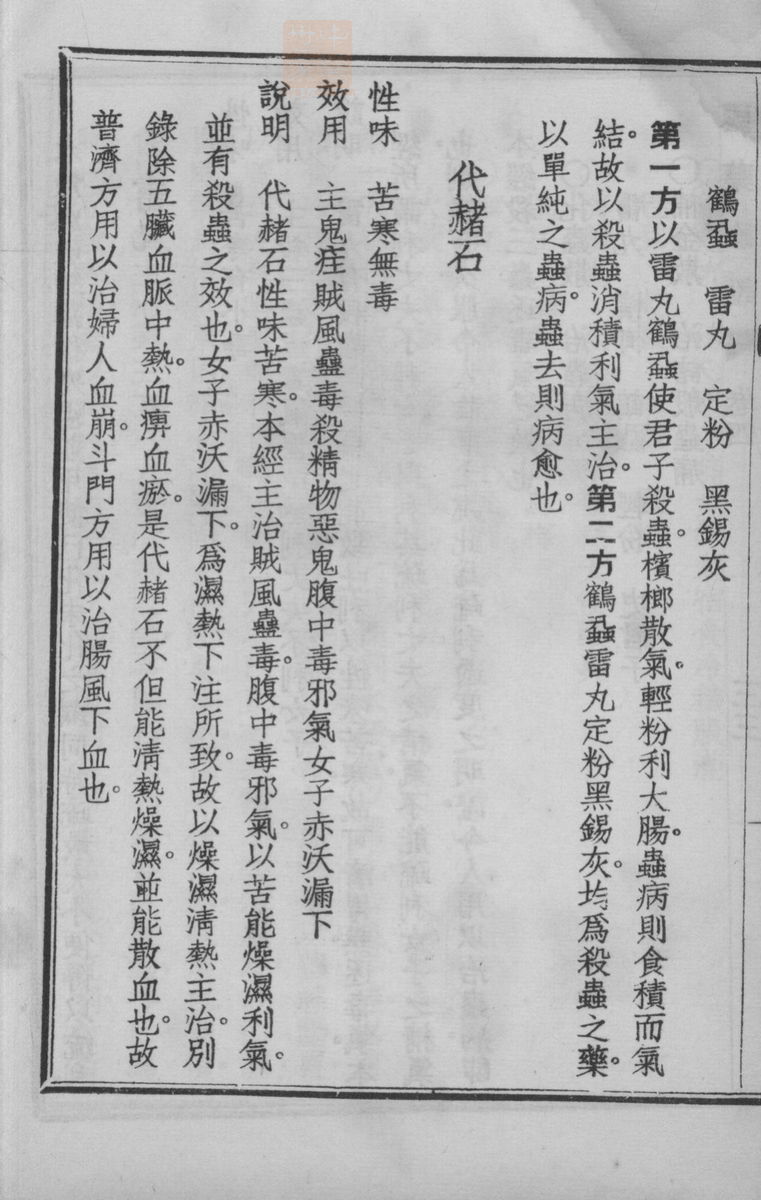 鶴蝨　雷丸　定粉　黑錫灰
第一方以雷丸鶴蝨使君子殺蟲。檳榔散氣。輕粉利大腸。蟲病則食積而氣
結。故以殺蟲消積利氣主治。第二方鶴蝨雷丸定粉黑錫灰。均爲殺蟲之藥。
以單純之蟲病。蟲去則病愈也。
代赭石
性味　苦寒無毒
效用　主鬼疰賊風蠱毒殺精物惡鬼腹中毒邪氣女子赤沃漏下
說明　代赭石性味苦寒。本經主治賊風蠱毒。腹中毒邪氣。以苦能燥濕利氣。
並有殺蟲之效也。女子赤沃漏下。爲濕熱下注所致。故以燥濕淸熱主治。別
錄除五臟血脈中熱。血痹血瘀。是代赭石不但能淸熱燥濕。並能散血也。故
普濟方用以治婦人血崩。斗門方用以治腸風下血也。